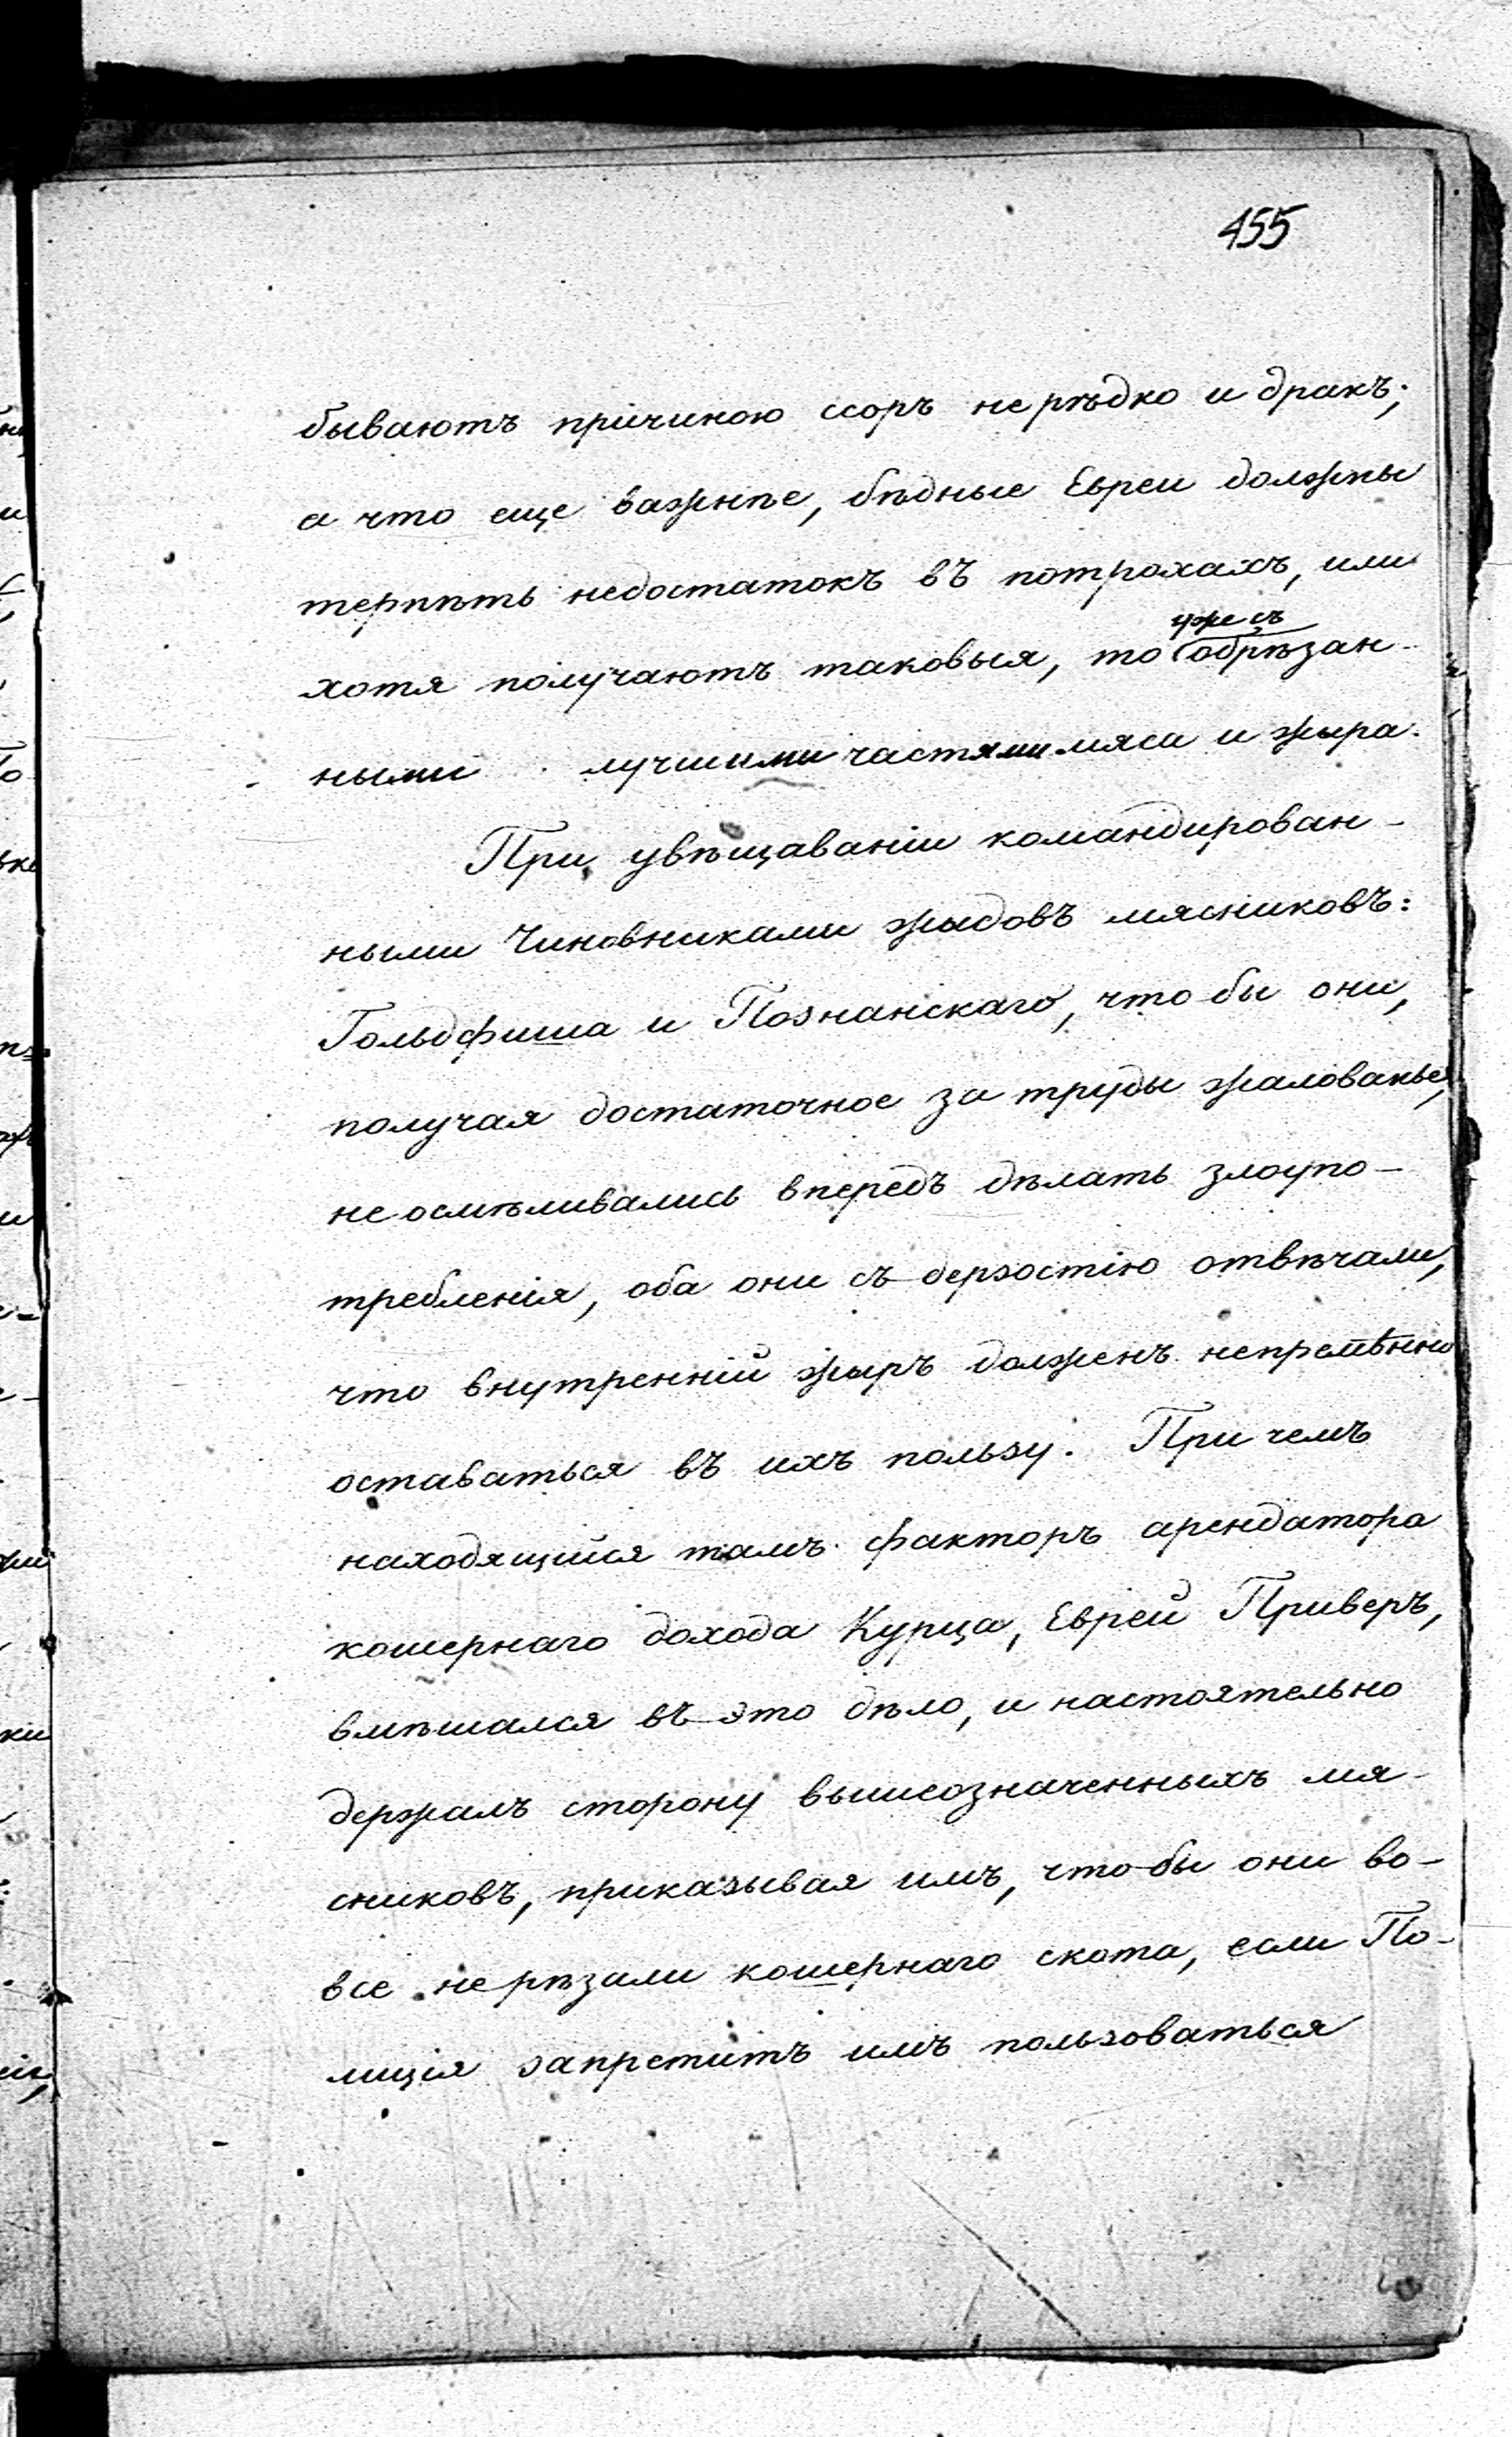 455
бываютъ причиною ссоръ нерѣдко и дракъ;
а что еще важнѣе, бѣдные Евреи должны
терпѣть недостатокъ въ потрохахъ, или
уже съ
хотя получаютъ таковыя, то обрѣзан-
ными лучшими частями мяса и жыра.
При увѣщаваніи командирован-
ными Чиновниками жыдовъ мясниковъ:
Гольдфиша и Познанскаго, что бы они,
получая достаточное за труды жалованье,
не осмѣливались впередъ дѣлать злоупо-
требленія, оба они съ дерзостію отвѣчали,
что внутренній жыръ долженъ непремѣнно
оставаться въ ихъ пользу. При чемъ
находящійся тамъ факторъ арендатора
кошернаго дохода Курца, Еврей Приверъ,
вмѣшался въ это дѣло, и настоятельно
держалъ сторону вышеозначенныхъ мя-
сниковъ, приказывая имъ, что бы они во-
все не рѣзали кошернаго скота, если По-
лиція запретитъ имъ пользоваться